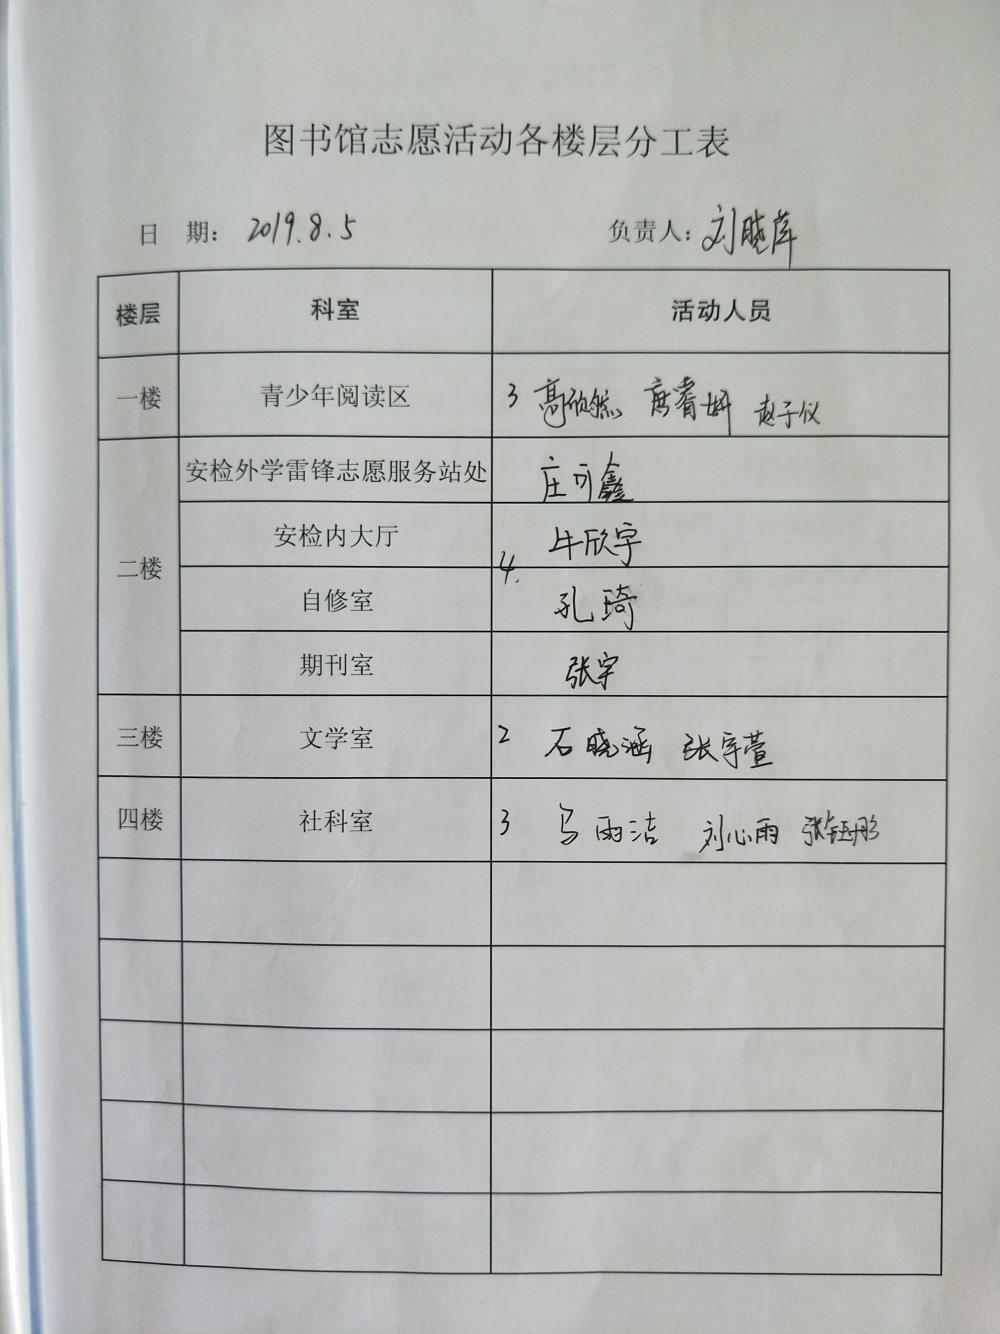 图书馆志愿活动各楼层分工表
日 期: 2019.8.5 负责人: 刘晓萍
楼层 科室 活动人员
一楼 青少年阅读区 3 高欣然 唐睿妍 赵子仪
二楼 安检外学雷锋志愿服务站处 4. 庄可鑫
安检内大厅 牛欣宇
自修室 孔琦
期刊室 张宇
三楼 文学室 2 石晓涵 张宇萱
四楼 社科室 3 马雨洁 刘心雨 张钰彤